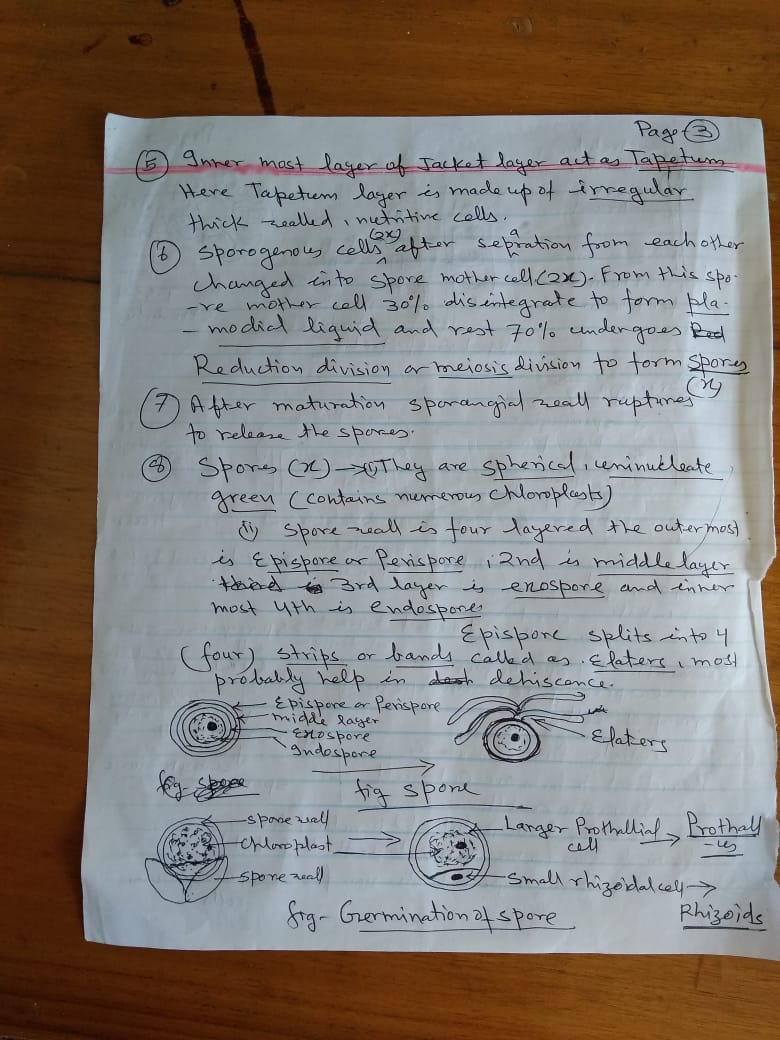 Page-③
⑤ Inner most layer of Jacket layer act as Tapetum
Here Tapetum layer is made up of irregular
thick walled, nutritive cells.
⑥ Sporogenous cells (2x) after sepration from each other
changed into spore mother cell (2x). From this spo-
-re mother cell 30% disintegrate to form pla-
-modial liquid and rest 70% undergoes Red
Reduction division or meiosis division to form spores
(x)
⑦ After maturation sporangial wall ruptures
to release the spores.
⑧ Spores (x) → (i) They are spherical, uninucleate
green (contains numerous chloroplasts)
(ii) Spore wall is four layered the outermost
is Epispore or Perispore, 2nd is middle layer
third is 3rd layer is exospore and inner
most 4th is endospores
Epispore splits into 4
(four) strips or bands called as Elaters, most
probably help in dehiscence.
Epispore or Perispore
middle layer
Exospore
Indospore
Elaters
fig- spore
fig spore
spore wall
Chloroplast
spore wall
Larger Prothallial → Prothall
cell
-us
Small rhizoidal cell →
Rhizoids
fig- Germination of spore